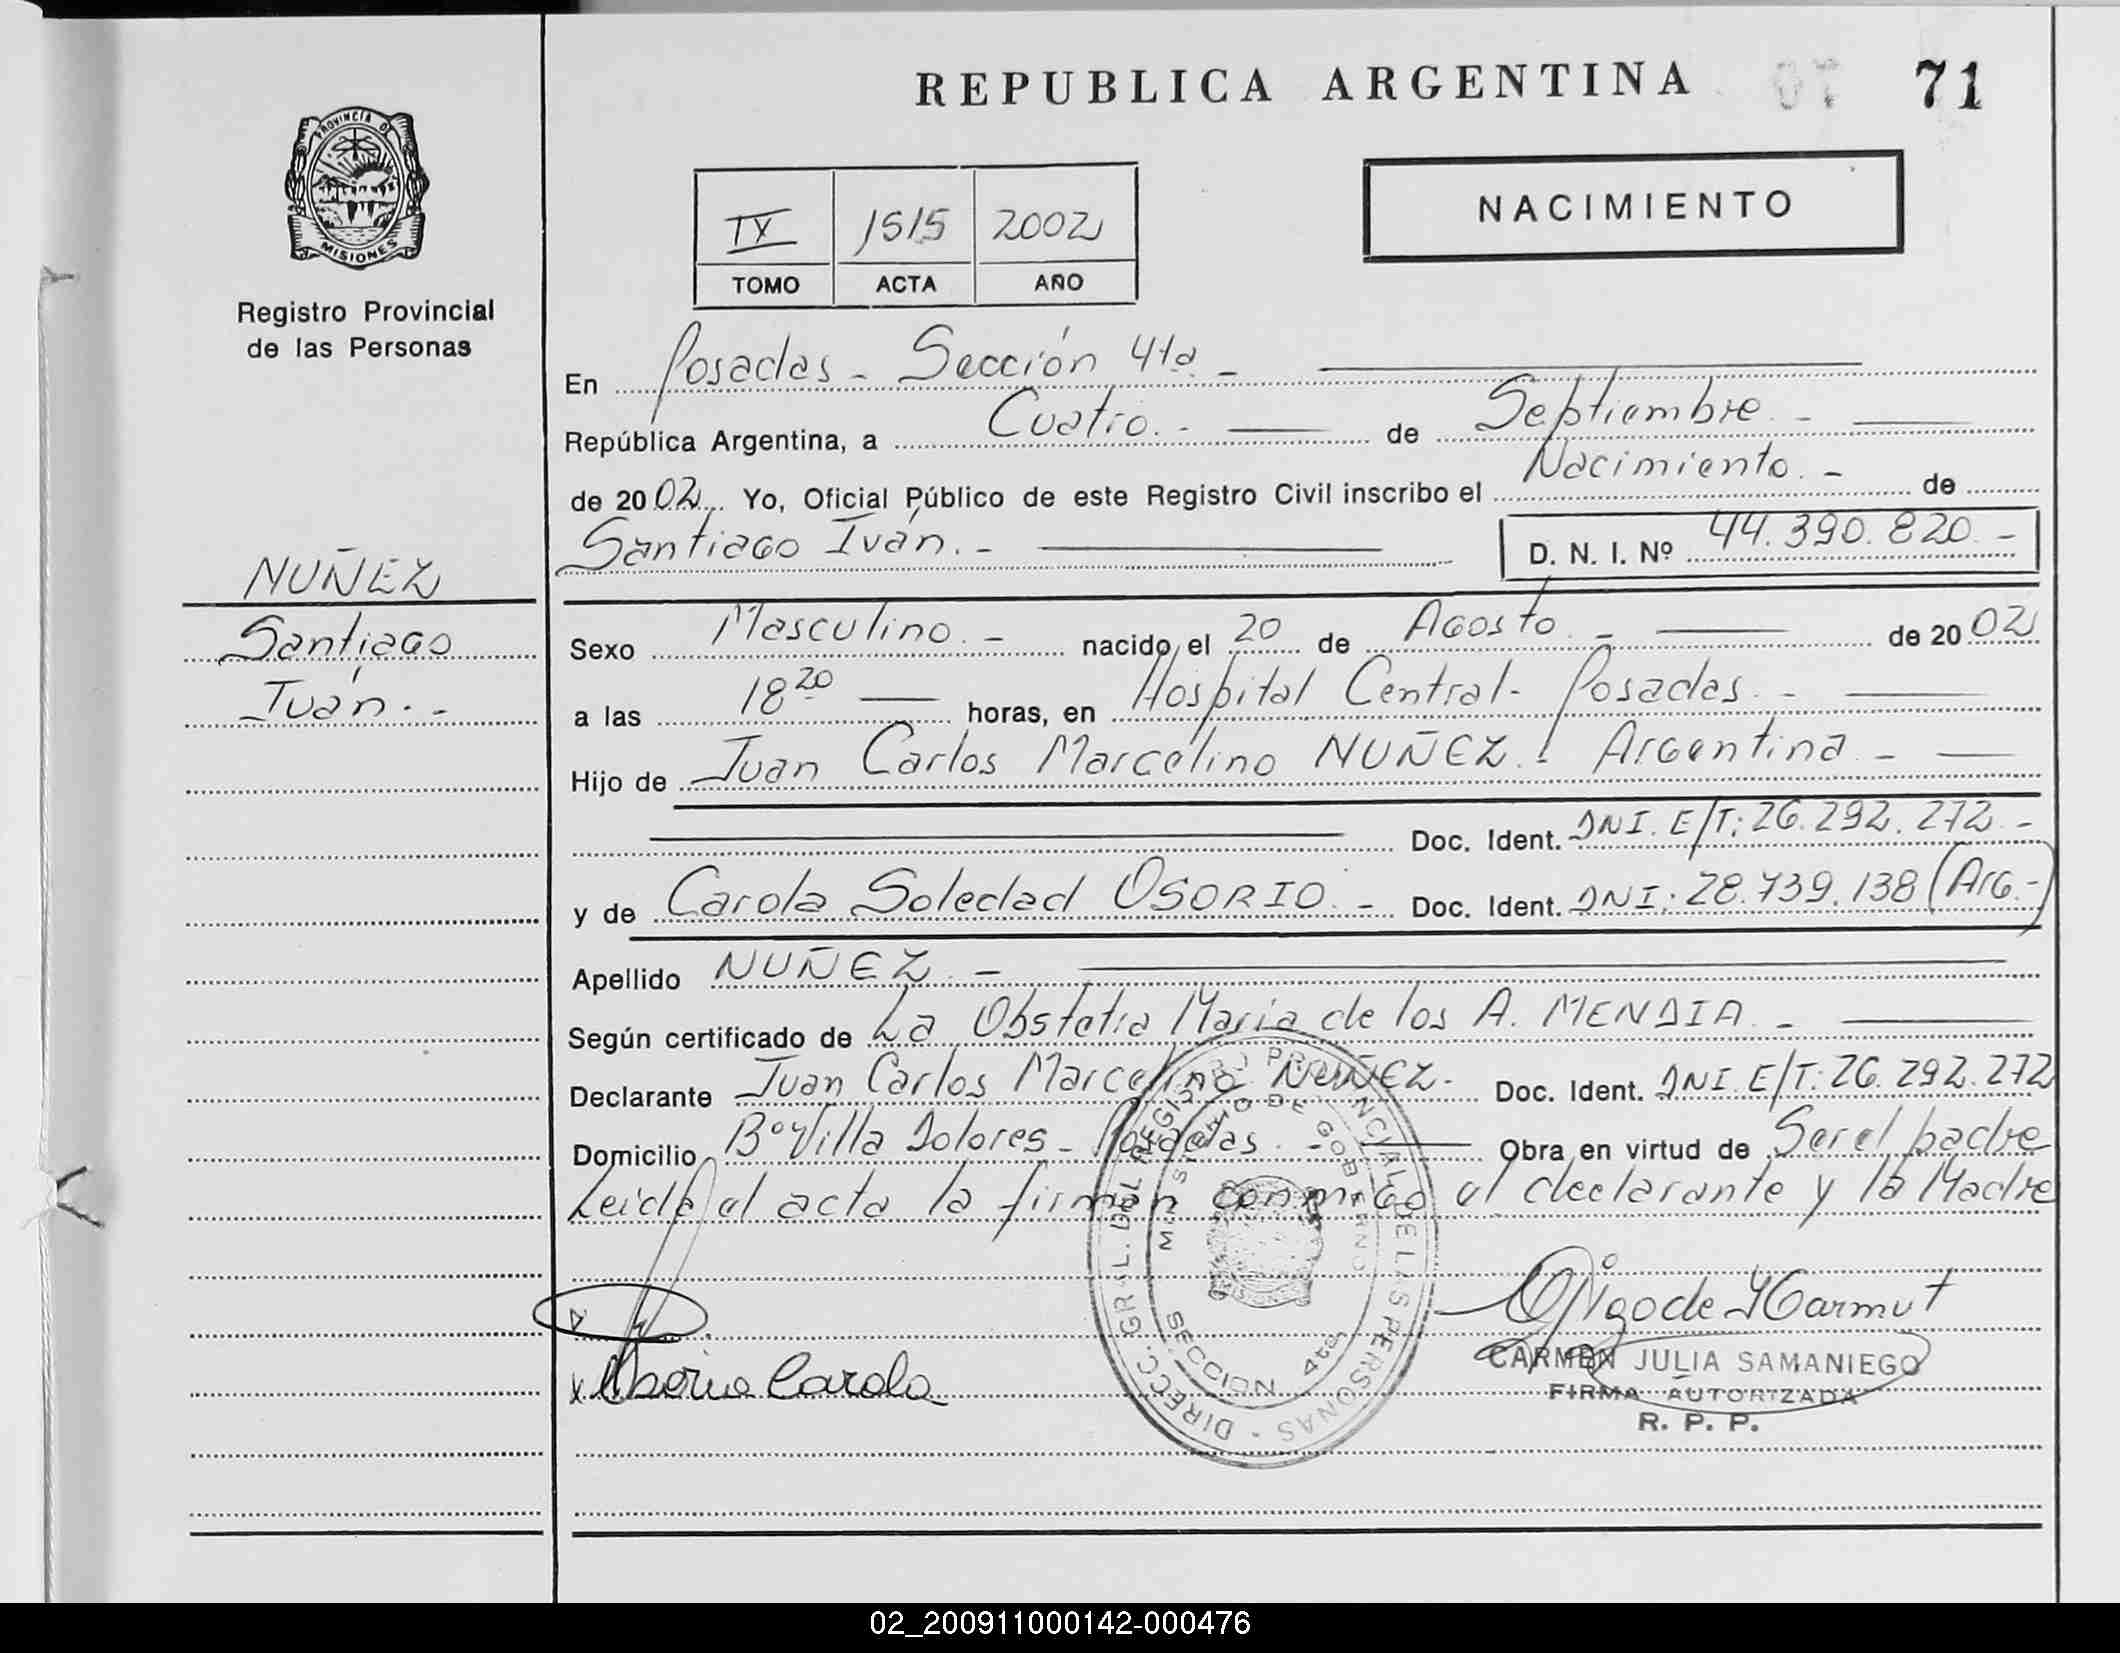 REPUBLICA ARGENTINA
71
PROVINCIA DE
MISIONES
Registro Provincial
de las Personas
NACIMIENTO
IX 1515 2002
TOMO ACTA AÑO
En Posadas - Sección 4ta -
República Argentina, a Cuatro. - de Septiembre. -
de 2002 Yo, Oficial Público de este Registro Civil inscribo el Nacimiento. - de
Santiago Iván. - D. N. I. Nº 44.390.820. -
NUÑEZ
Santiago
Iván. -
Sexo Masculino. - nacido el 20 de Agosto. - de 2002
a las 18 20 horas, en Hospital Central - Posadas. -
Hijo de Juan Carlos Marcelino NUÑEZ. Argentina -
Doc. Ident. DNI. E/T: 26.292.272. -
y de Carola Soledad OSORIO. - Doc. Ident. DNI: 28.739.138 (Arg. -)
Apellido NUÑEZ. -
Según certificado de La Obstetra María de los A. MENDIA. -
Declarante Juan Carlos Marcelino NUÑEZ. Doc. Ident. DNI. E/T: 26.292.272
Domicilio Bº Villa Dolores - Posadas. - Obra en virtud de Ser el padre
Leida el acta la firman conmigo el declarante y la Madre
Osorio Carola
DIRECC. GRAL. DEL REGISTRO PROVINCIAL DE LAS PERSONAS
MINISTERIO DE GOBIERNO
SECCION 4ta
CARMEN JULIA SAMANIEGO
FIRMA AUTORIZADA
R. P. P.
02_200911000142-000476